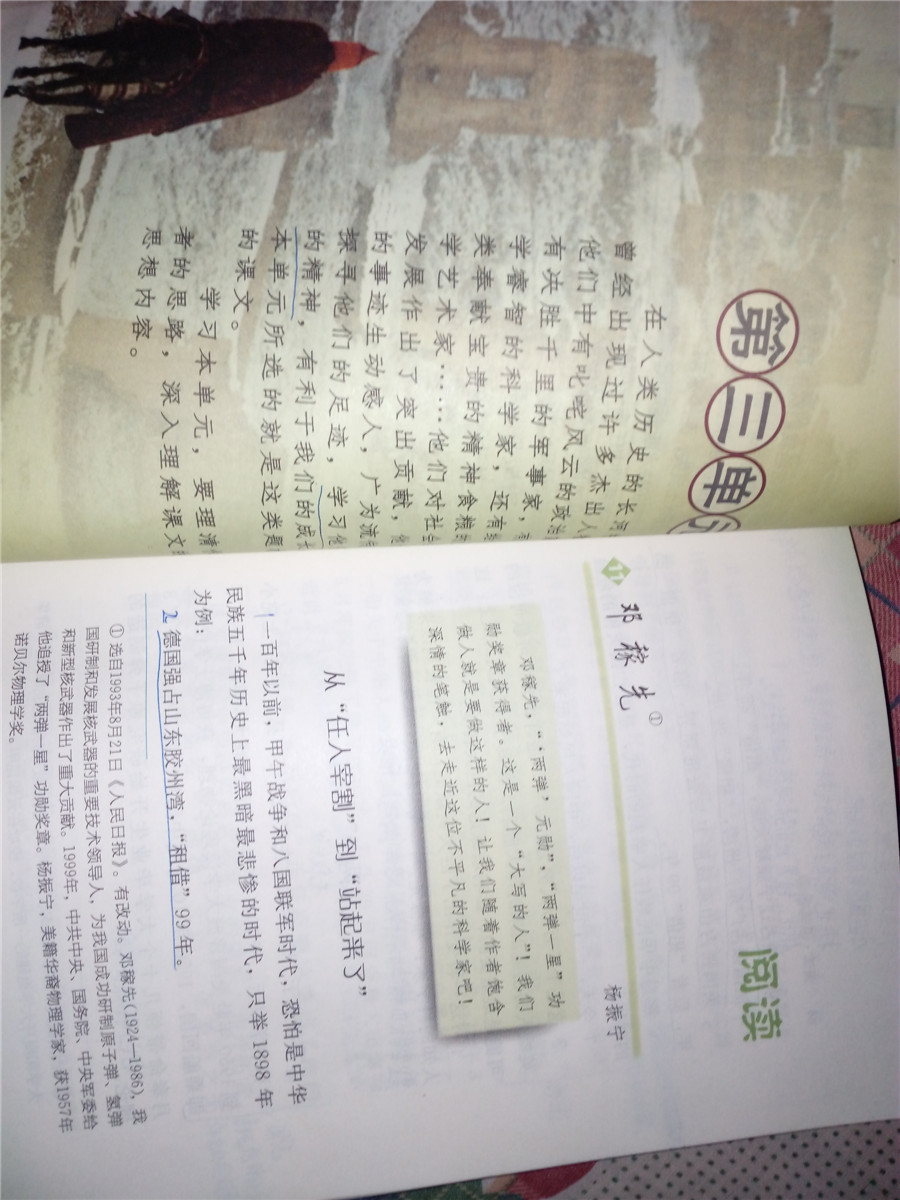 第三单
在人类历史的长河
曾经出现过许多杰出人
他们中有叱咤风云的政治
有决胜千里的军事家，
学睿智的科学家，还有
类奉献宝贵的精神食粮的
学艺术家……他们对社会
发展作出了突出贡献，他
的事迹生动感人，广为流
探寻他们的足迹，学习他
的精神，有利于我们的成长
本单元所选的就是这类题
的课文。
学习本单元，要理清
者的思路，深入理解课文
思想内容。
阅读
11 邓稼先①
杨振宁
邓稼先，“‘两弹’元勋”，“两弹一星”功
勋奖章获得者。这是一个“大写的人”！我们
做人就是要做这样的人！让我们随着作者饱含
深情的笔触，去走近这位不平凡的科学家吧！
从“任人宰割”到“站起来了”
1一百年以前，甲午战争和八国联军时代，恐怕是中华
民族五千年历史上最黑暗最悲惨的时代，只举1898年
为例：
2德国强占山东胶州湾，“租借”99年。
①选自1993年8月21日《人民日报》。有改动。邓稼先(1924—1986)，我
国研制和发展核武器的重要技术领导人，为我国成功研制原子弹、氢弹
和新型核武器作出了重大贡献。1999年，中共中央、国务院、中央军委给
他追授了“两弹一星”功勋奖章。杨振宁，美籍华裔物理学家，获1957年
诺贝尔物理学奖。